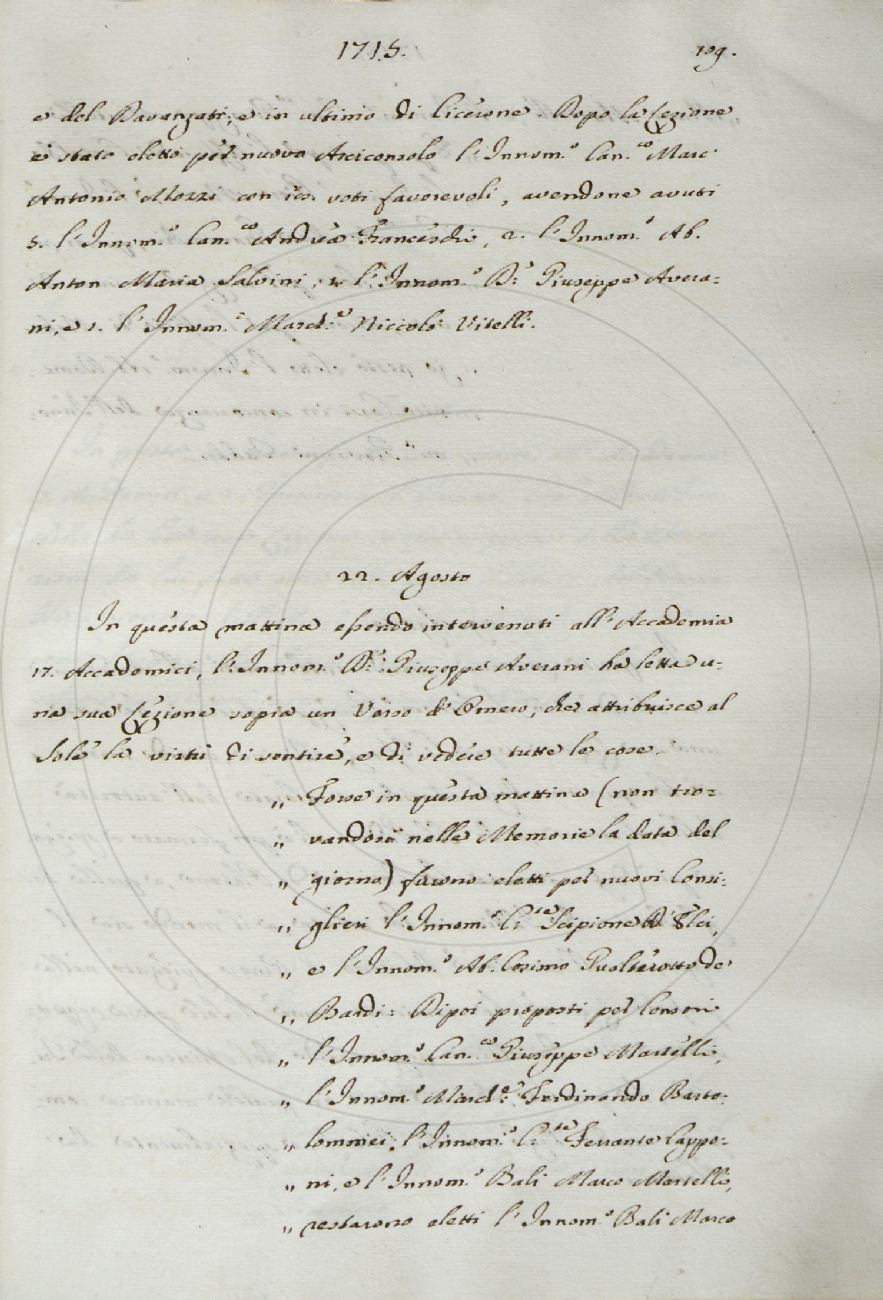 1715. 109.
e del Davanzati, e in ultimo di Cicerone. Dopo la Lezione
è stato eletto per nuovo Arciconsolo l'Innom.º Can.co Marc
Antonio Mozzi con voti favorevoli, avendone avuti
5. l'Innom.º Can.co Andrea Franceschi, 2. l'Innom.º Ab.
Anton Maria Salvini, l'Innom.º D.r Giuseppe Avera:
ni, e 1. l'Innom.º March.e Niccolò Vitelli.
22. Agosto
In questa mattina essendo intervenuti all'Accademia
17. Accademici, l'Innom.º D.r Giuseppe Averani ha letta u:
na sua Lezione sopra un Verso d'Omero, che attribuisce al
Sole la virtù di sentire, e di vedere tutte le cose.
„ Forse in questa mattina (non tro:
„ vandosi nelle Memorie la data del
„ giorno) furono eletti per nuovi Consi:
„ glieri l'Innom.º C.te Scipione d'Elci,
„ e l'Innom.º Ab. Cosimo Gualterotto de
„ Bardi: Dipoi proposti per Censori
„ l'Innom.º Can.co Giuseppe Martelli,
„ l'Innom.º March.e Ferdinando Barto:
„ lommei, l'Innom.º C.te Ferrante Cappo:
„ ni, e l'Innom.º Balì Marco Martelli,
„ restarono eletti l'Innom.º Balì Marco